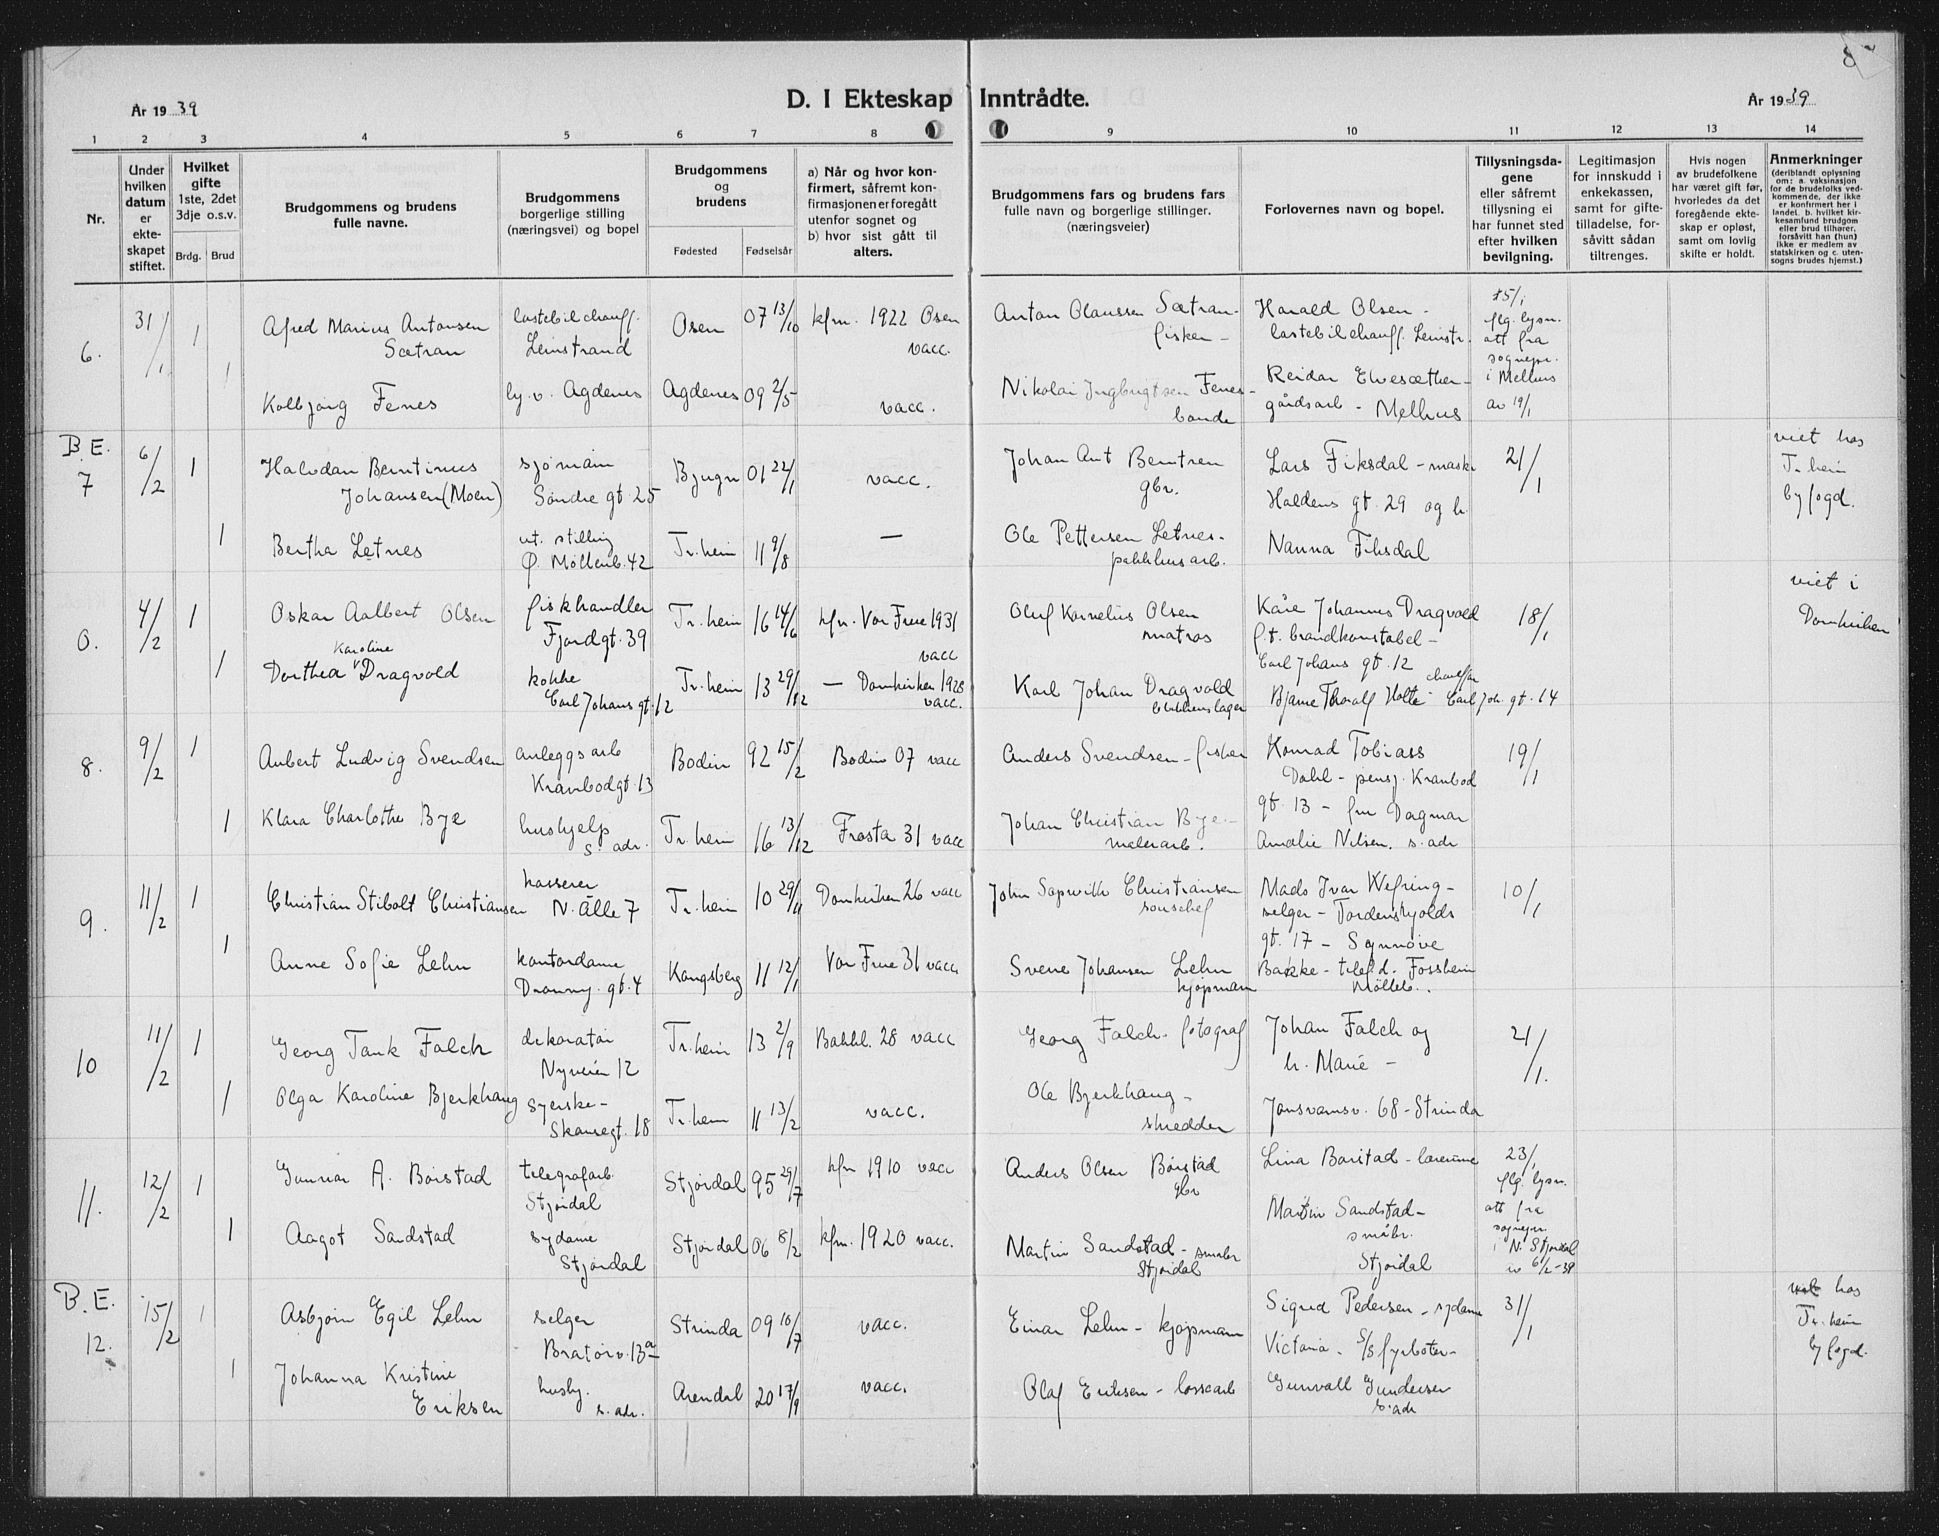 8
År 19 39
D. I Ekteskap Inntrådte.
År 19 39
1 2 3 4 5 6 7 8 9 10 11 12 13 14
Nr.
Under hvilken datum er ekte-skapet stiftet.
Hvilket gifte 1ste, 2det 3dje o.s.v.
Brdg. Brud
Brudgommens og brudens fulle navne.
Brudgommens borgerlige stilling (næringsvei) og bopel
Brudgommens og brudens
Fødested Fødselsår
a) Når og hvor kon-firmert, såfremt kon-firmasjonen er foregått utenfor sognet og
b) hvor sist gått til alters.
Brudgommens fars og brudens fars fulle navn og borgerlige stillinger. (næringsveier)
Forlovernes navn og bopel.
Tillysningsda-gene eller såfremt tillysning ei har funnet sted efter hvilken bevilgning.
Legitimasjon for innskudd i enkekassen, samt for gifte-tilladelse, for-såvitt sådan tiltrenges.
Hvis nogen av brudefolkene har været gift før, hvorledes da det foregående ekte-skap er opløst, samt om lovlig skifte er holdt.
Anmerkninger (deriblandt oplysning om: a. vaksinasjon for de brudefolks ved-kommende, der ikke er konfirmert her i landet. b. hvilket kir-kesamfund brudgom eller brud tilhører, forsåvitt han (hun) ikke er medlem av statskirken og c. uten-sogns brudes hjemst.)
6. 31/1 1 Afred Marius Antonsen Sætran lastebilchauff. Leinstrand Osen 07 13/10 kfm. 1922 Osen vacc. Anton Olaussen Sætran- fisker - Harald Olsen - lastebilchauff. Leinstr. 15/1 flg. lysn. att fra sognepr. i Melhus av 19/1
1 Kolbjørg Fenes ly. v. Agdenes Agdenes 09 2/5 vacc. Nikolai Ingbrigtsen Fenes- bonde Reidar Elvesæther - gårdsarb - Melhus
B.E. 7 6/2 1 Halvdan Berntinus Johansen (Moen) sjømann Søndre gt. 25 Bjugn 01 22/1 vacc. Johan Ant Berntsen gbr. Lars Fiksdal - mask. Haldens gt. 29 og h. 21/1 viet hos Tr.heim byfogd.
1 Bertha Letnes ut. stilling Ø. Møllenb. 42 Tr.heim 11 9/8 — Ole Pettersen Letnes - pakkhusarb. Nanna Fiksdal
0. 4/2 1 Oskar Aalbert Olsen fiskhandler Fjordgt. 39 Tr.heim 16 14/6 kfm. Vor Frue 1931 vacc Oluf Kornelius Olsen matros Kåre Johannes Dragvold f.t. brandkonstabel - Carl Johans gt. 12 18/1 viet i Domkirken
1 Dorthea Karoline Dragvold kokke Carl Johans gt. 12 Tr.heim 13 29/12 — Domkirken 1928 vacc. Karl Johan Dragvold blikkenslager Bjarne Thoralf Holte - chauffør Carl Joh. gt. 14
8. 9/2 1 Aubert Ludvig Svendsen anleggsarb Kranbodgt. 13 Bodin 92 15/2 Bodin 07 vacc Anders Svendsen - fisker Konrad Tobiass Dahl - pensj. Kranbod gt. 13 - fru Dagmar 19/1
1 Klara Charlothe Bye hushjelp s. adr. Tr.heim 16 13/12 Frosta 31 vacc Johan Christian Bye - malerarb. Amalie Nilsen. s. adr
9. 11/2 1 Christian Stibolt Christiansen kasserer N. Alle 7 Tr.heim 10 29/11 Domkirken 26 vacc John Sopwith Christiansen souschef Mads Ivar Wefring - selger - Tordenskjolds gt. 17 - Synnøve 10/1
1 Anne Sofie Lehn kontordame Dronn. gt. 4 Kongsberg 11 12/1 Vor Frue 31 vacc Svene Johansen Lehn kjøpmann Bakke - telef.d. Fossheim Mølleb.
10 11/2 1 Georg Tank Falch dekoratør Nyveien 12 Tr.heim 13 2/9 Bakkl. 28 vacc Georg Falch - fotograf Johan Falch og h. Marie - 21/1.
1 Olga Karoline Bjerkhaug syerske - Skansegt. 18 Tr.heim 11 13/2 vacc. Ole Bjerkhaug - skredder Jonsvannsv. 68 - Strinda
11. 12/2 1 Gunnar A. Borstad telegrafarb. Stjørdal Stjørdal 95 29/7 kfm 1910 vacc Anders Olsen Borstad gbr Lina Borstad - lærerinne 23/1 flg. lysn. att fra sognepr. i N. Stjørdal av 6/2-39
1 Aagot Sandstad sydame Stjørdal Stjørdal 06 8/2 kfm. 1920 vacc. Martin Sandstad - småbr Stjørdal Martin Sandstad - småbr. Stjørdal
B.E. 12. 15/2 1 Asbjørn Egil Lehn selger Bratørv. 13a Strinda 09 10/7 vacc. Einar Lehn - kjøpmann Sigrid Pedersen - sydame Victoria - s/s fyrbøter - 31/1 viet hos Tr.heim byfogd.
1 Johanna Kristine Eriksen husby. s. adr. Arendal 20 17/9 vacc. Olaf Eriksen - lossearb Gunvall Gundersen s. adr